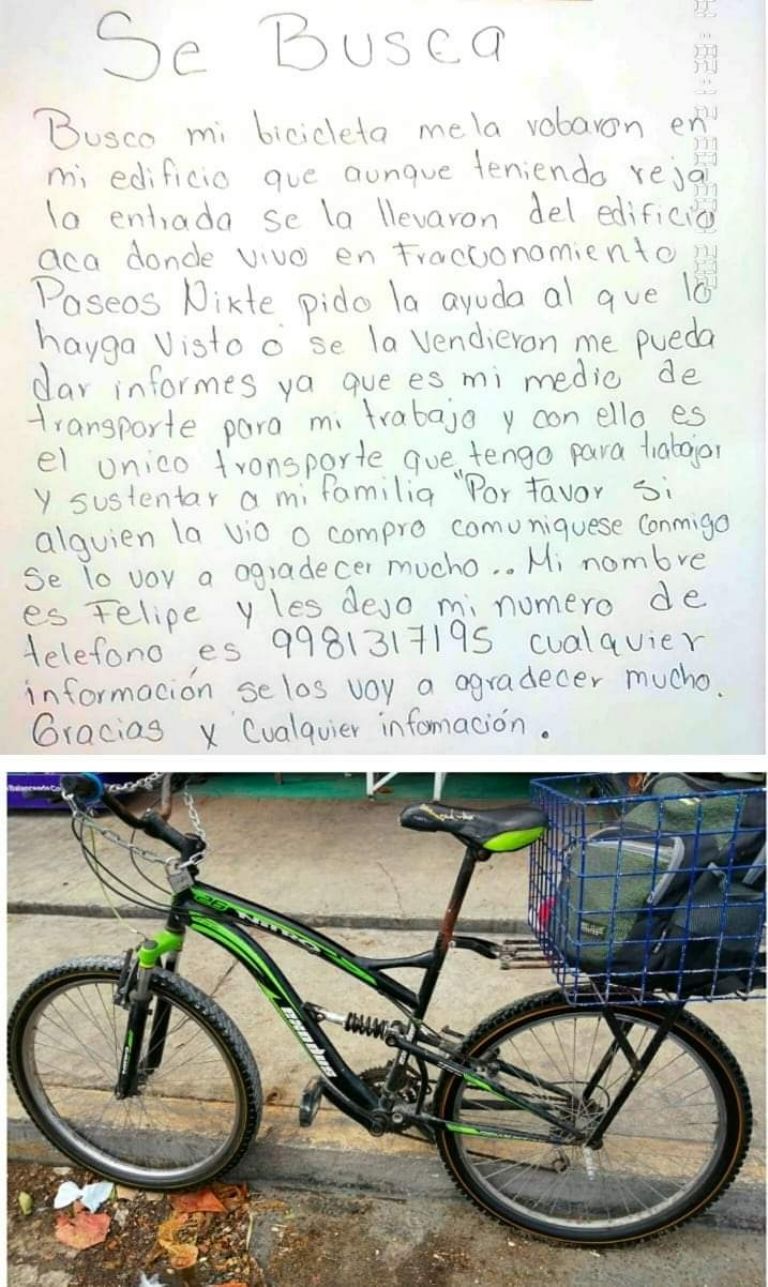 Se Busca
Busco mi bicicleta mela robaron en
mi edificio que aunque teniendo reja
la entrada se la llevaron del edificio
aca donde vivo en Fraccionamiento
Paseos Nikte pido la ayuda al que lo
hayga visto o se la vendieron me pueda
dar informes ya que es mi medio de
transporte para mi trabajo y con ello es
el unico transporte que tengo para trabajar
y sustentar a mi familia "Por Favor si
alguien la vio o compro comuniquese conmigo
se lo voy a agradecer mucho.. Mi nombre
es Felipe y les dejo mi numero de
telefono es 9981317195 cualquier
información se los voy a agradecer mucho.
Gracias x Cualquier infomación.
26 NITRO